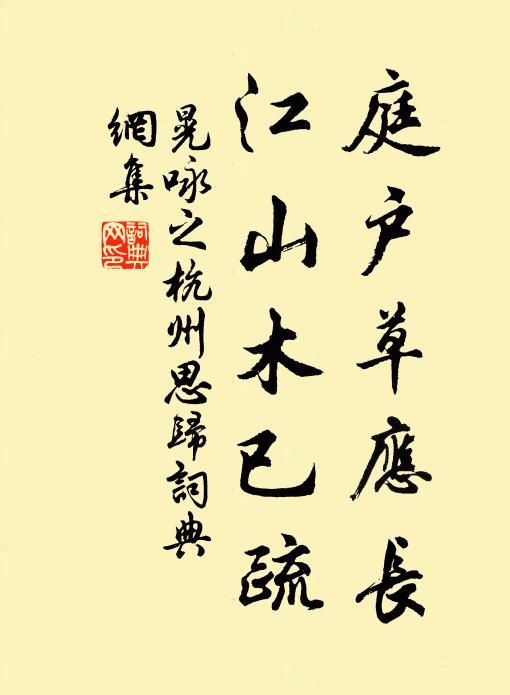 庭户草應長
江山木已疏
晁咏之杭州思歸詞典
網集
詞典
网印